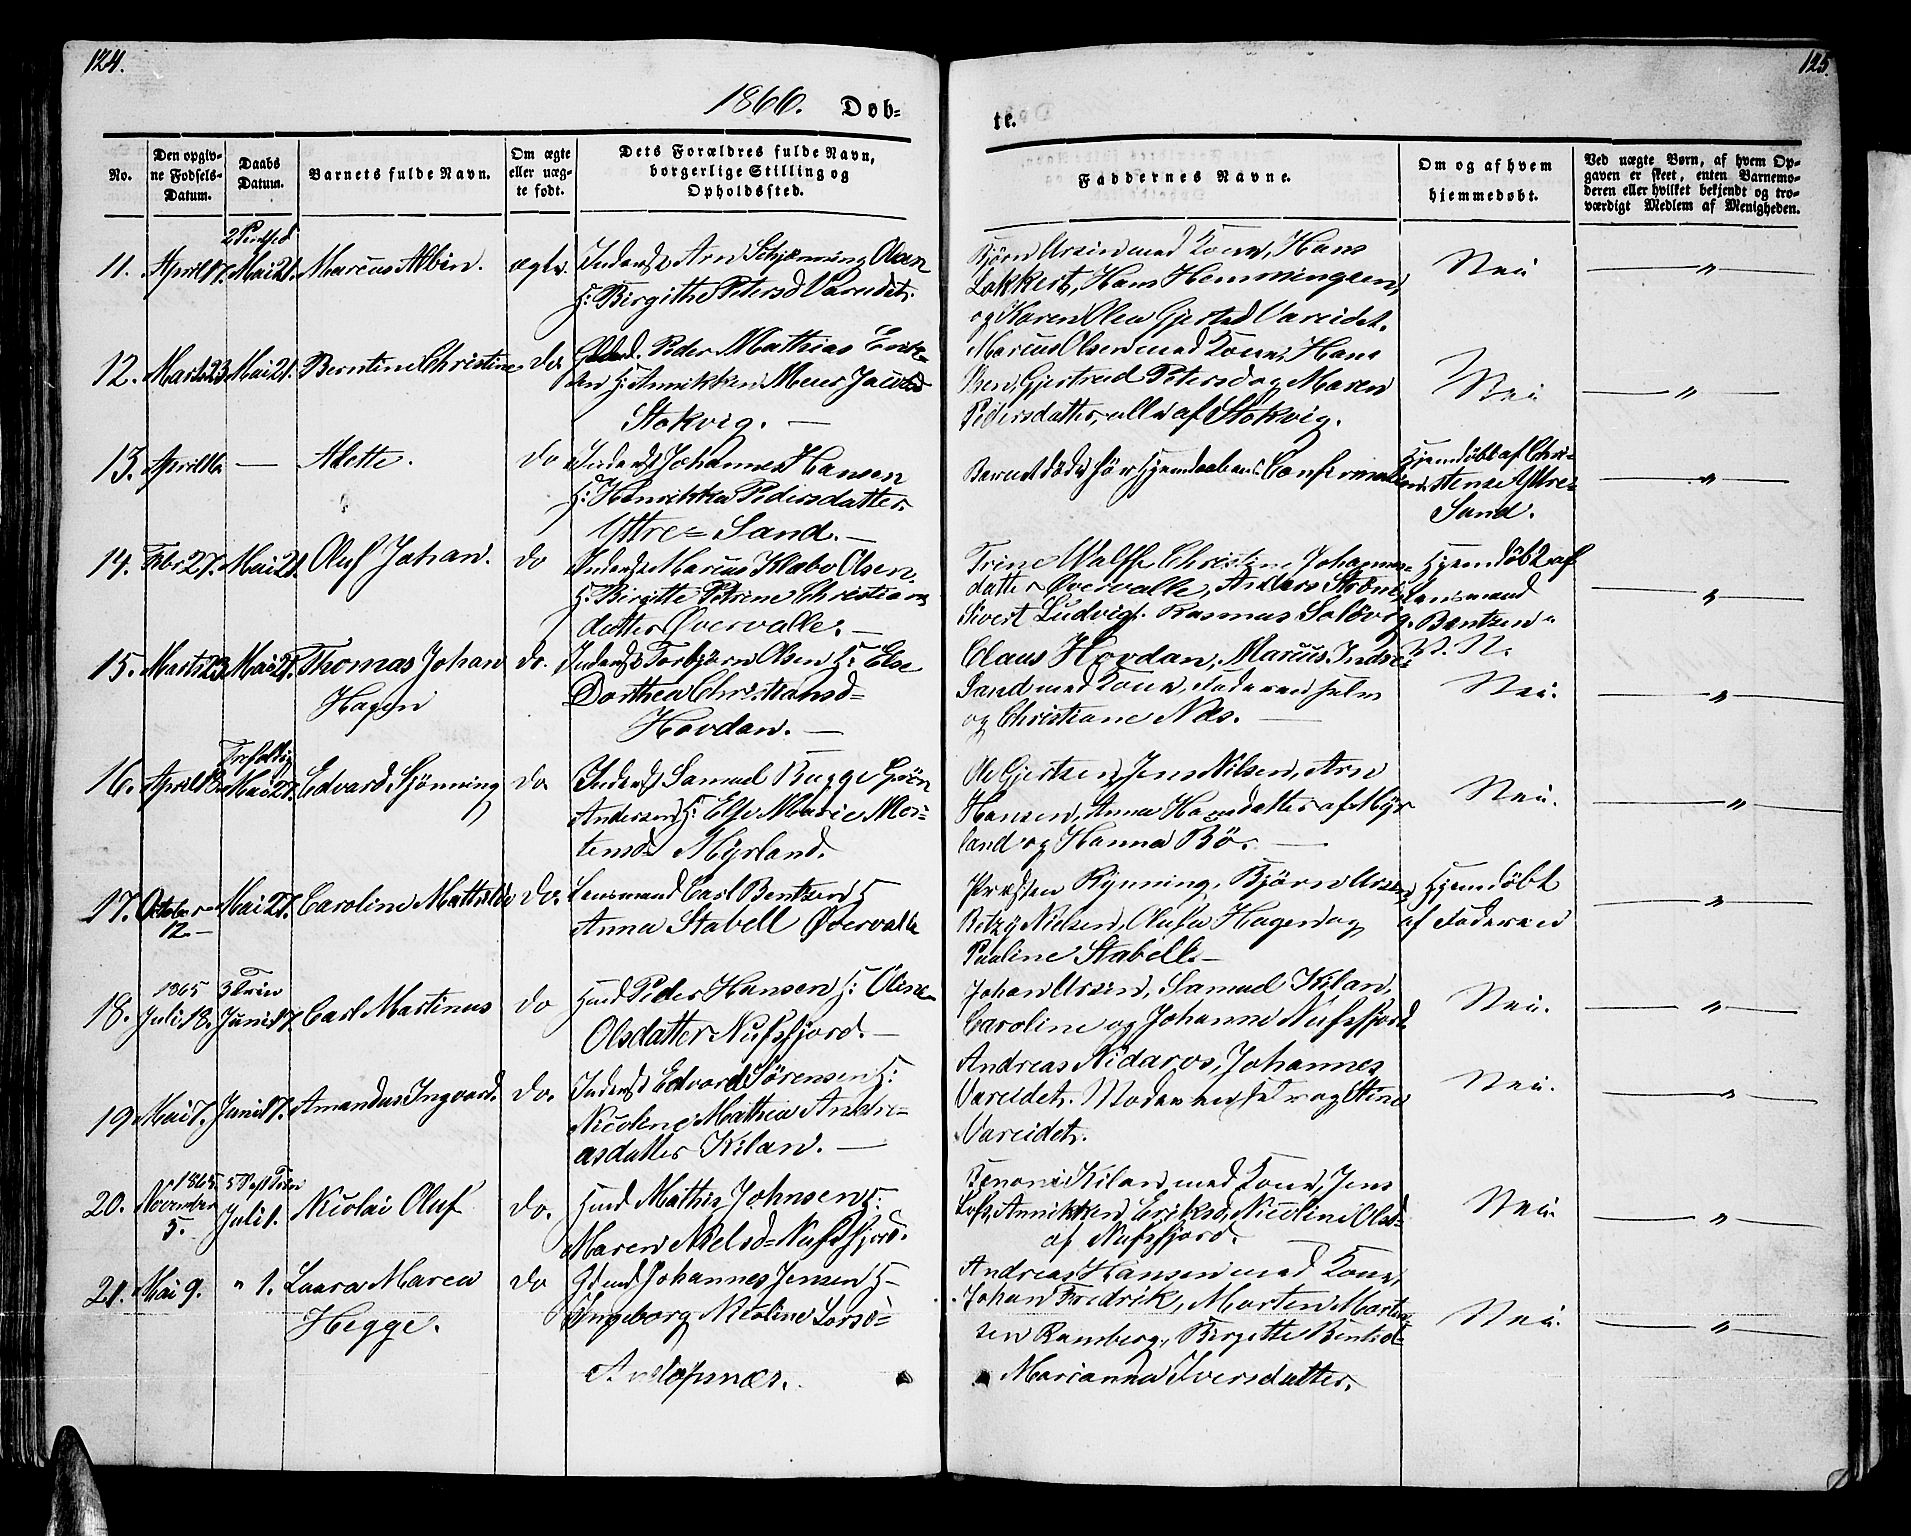 124.
125.
1866. Døb=
te.
No.
Den opgiv-
ne Fødsels-
Datum.
Daabs
Datum.
Barnets fulde Navn.
Om ægte
eller uæg-
te født.
Dets Forældres fulde Navn,
borgerlige Stilling og
Opholdssted.
Faddernes Navne.
Om og af hvem
hjemmedøbt.
Ved uægte Børn, af hvem Op-
gaven er skeet, enten Barnemo-
deren eller hvilket bekjendt og tro-
værdigt Medlem af Menigheden.
11. April 17. 2 Pintsed Mai 21. Marcus Albin. ægte. Inderst Arn Schjønning Olsen
H: Birgithe Petersd Vareidet.
Bjørn Ursin med Kone, Hans
Lakkert, Hans Hemmingsen,
og Karen Olea Gjertsd Vareidet.
Nei "
12. Marts 23. Mai 21. Berntine Christine do. Peder Mathias Erik-
sen H: Annikken Meier Jacobsd
Stokvig. —
Marcus Olsen med Kone, Hans
Iben, Gjertrud Petersd og Maren
Pedersdatter, alle af Stokvig.
Nei "
13. April 16 — Alette. do Inderst Johannes Hansen
H: Henrikka Pedersdatter.
Yttre= Sand. —
Barnet døde før Hjemdaabens Confirmation
Hjemdøbt af Chri-
stense Yttre=
Sand. "
14. Febr 27. Mai 21. Oluf Johan. do Inderst Marcus Klæbo Olsen.
H: Birgitte Petrine Christians
datter Øvervalle. —
Trine Wolff Christine Johannes=
datter Øvervalle, Anders Strøm,
Sivert Ludvigs. Rasmus Solövg.
Hjemdøbt af
Lensmand
Bentzen "
15. Marts 23. Mai 21. Thomas Johan
Hagen do. Inderst Torbjørn Olsen H: Else
Dorthea Christiansd=
Hovdan. —
Claus Hovdan, Marcus Indre=
Sand med Kone, Faderen selv
og Christiane Næs. —
Nei. "
16. April 18. Trefoldig Mai 27. Edvard Sjönning do Inderst Samuel Bugge Grön
Andersen H: Else Marie Mor=
tensd= Myrland.
Ole Gjertsen, Jens Nilsen, Arn
Hansen, Anna Hansdatter af Myr
land og Hanna Bö. —
Nei. "
17. October
12. — Mai 27. Caroline Mathilde do. Lensmand Carl Bentzen H
Anna Stabell Øvervalle
Presten Rynning, Bjørn Ursin,
Betzy Nielsen, Olufa Hagen og
Pauline Stabell. —
Hjemdøbt
af Faderen "
18. 1865
Juli 18. 3 Trin
Juni 17. Carl Martinus do Huusd Peder Hansen H: Oline
Olsdatter Nufsfjord. —
Johan Ursin, Samuel Kilan,
Caroline og Johanne Nufsfjord.
Nei. "
19 Mai 7. Juni 17. Amandus Ingvard. do. Inderst Edvard Sørensen H:
Nicoline Mathea Andre=
asdatter Kilan. —
Andreas Nidaros, Johannes
Vareidet. Moderen selv og Stine
Vareidet.
Nei. "
20. 1865.
November
5. 5 S eft Trin
Juli 1. Nicolai Oluf do. Huusd Mathis Johnsen H:
Maren Nielsd= Nufsfjord.
Benoni Kilan med Kone, Jens
Lofs, Annikken Eriksd, Nicoline Olsd
af Nufsfjord. —
Nei. "
21. Mai 9. " 1. Laura Marea
Hegge. do Johannes Jensen H—
Ingeborg Nicoline Larsd=
Andopsnæs.
Andreas Hansen med Kone,
Johan Fredrik, Morten Morten-
sen Ramberg, Birgitte
Marianna Iversdatter.
Nei. "